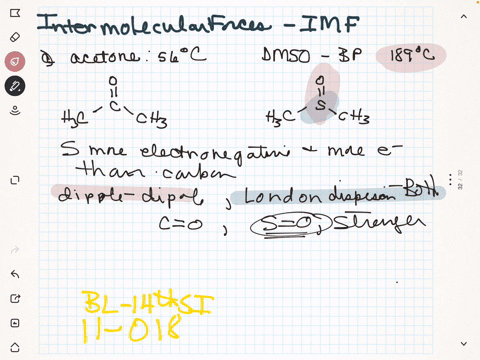 Intermolecular Forces - IMF
a) acetone: 56°C
DMSO - BP 189°C
O
O
C
S
H₃C CH₃
H₃C CH₃
S more electronegative + more e⁻
than carbon
dipole-dipole, London dispersion - Both
C=O, S=O, Stronger
BL-14th SI
11-018
32 / 32